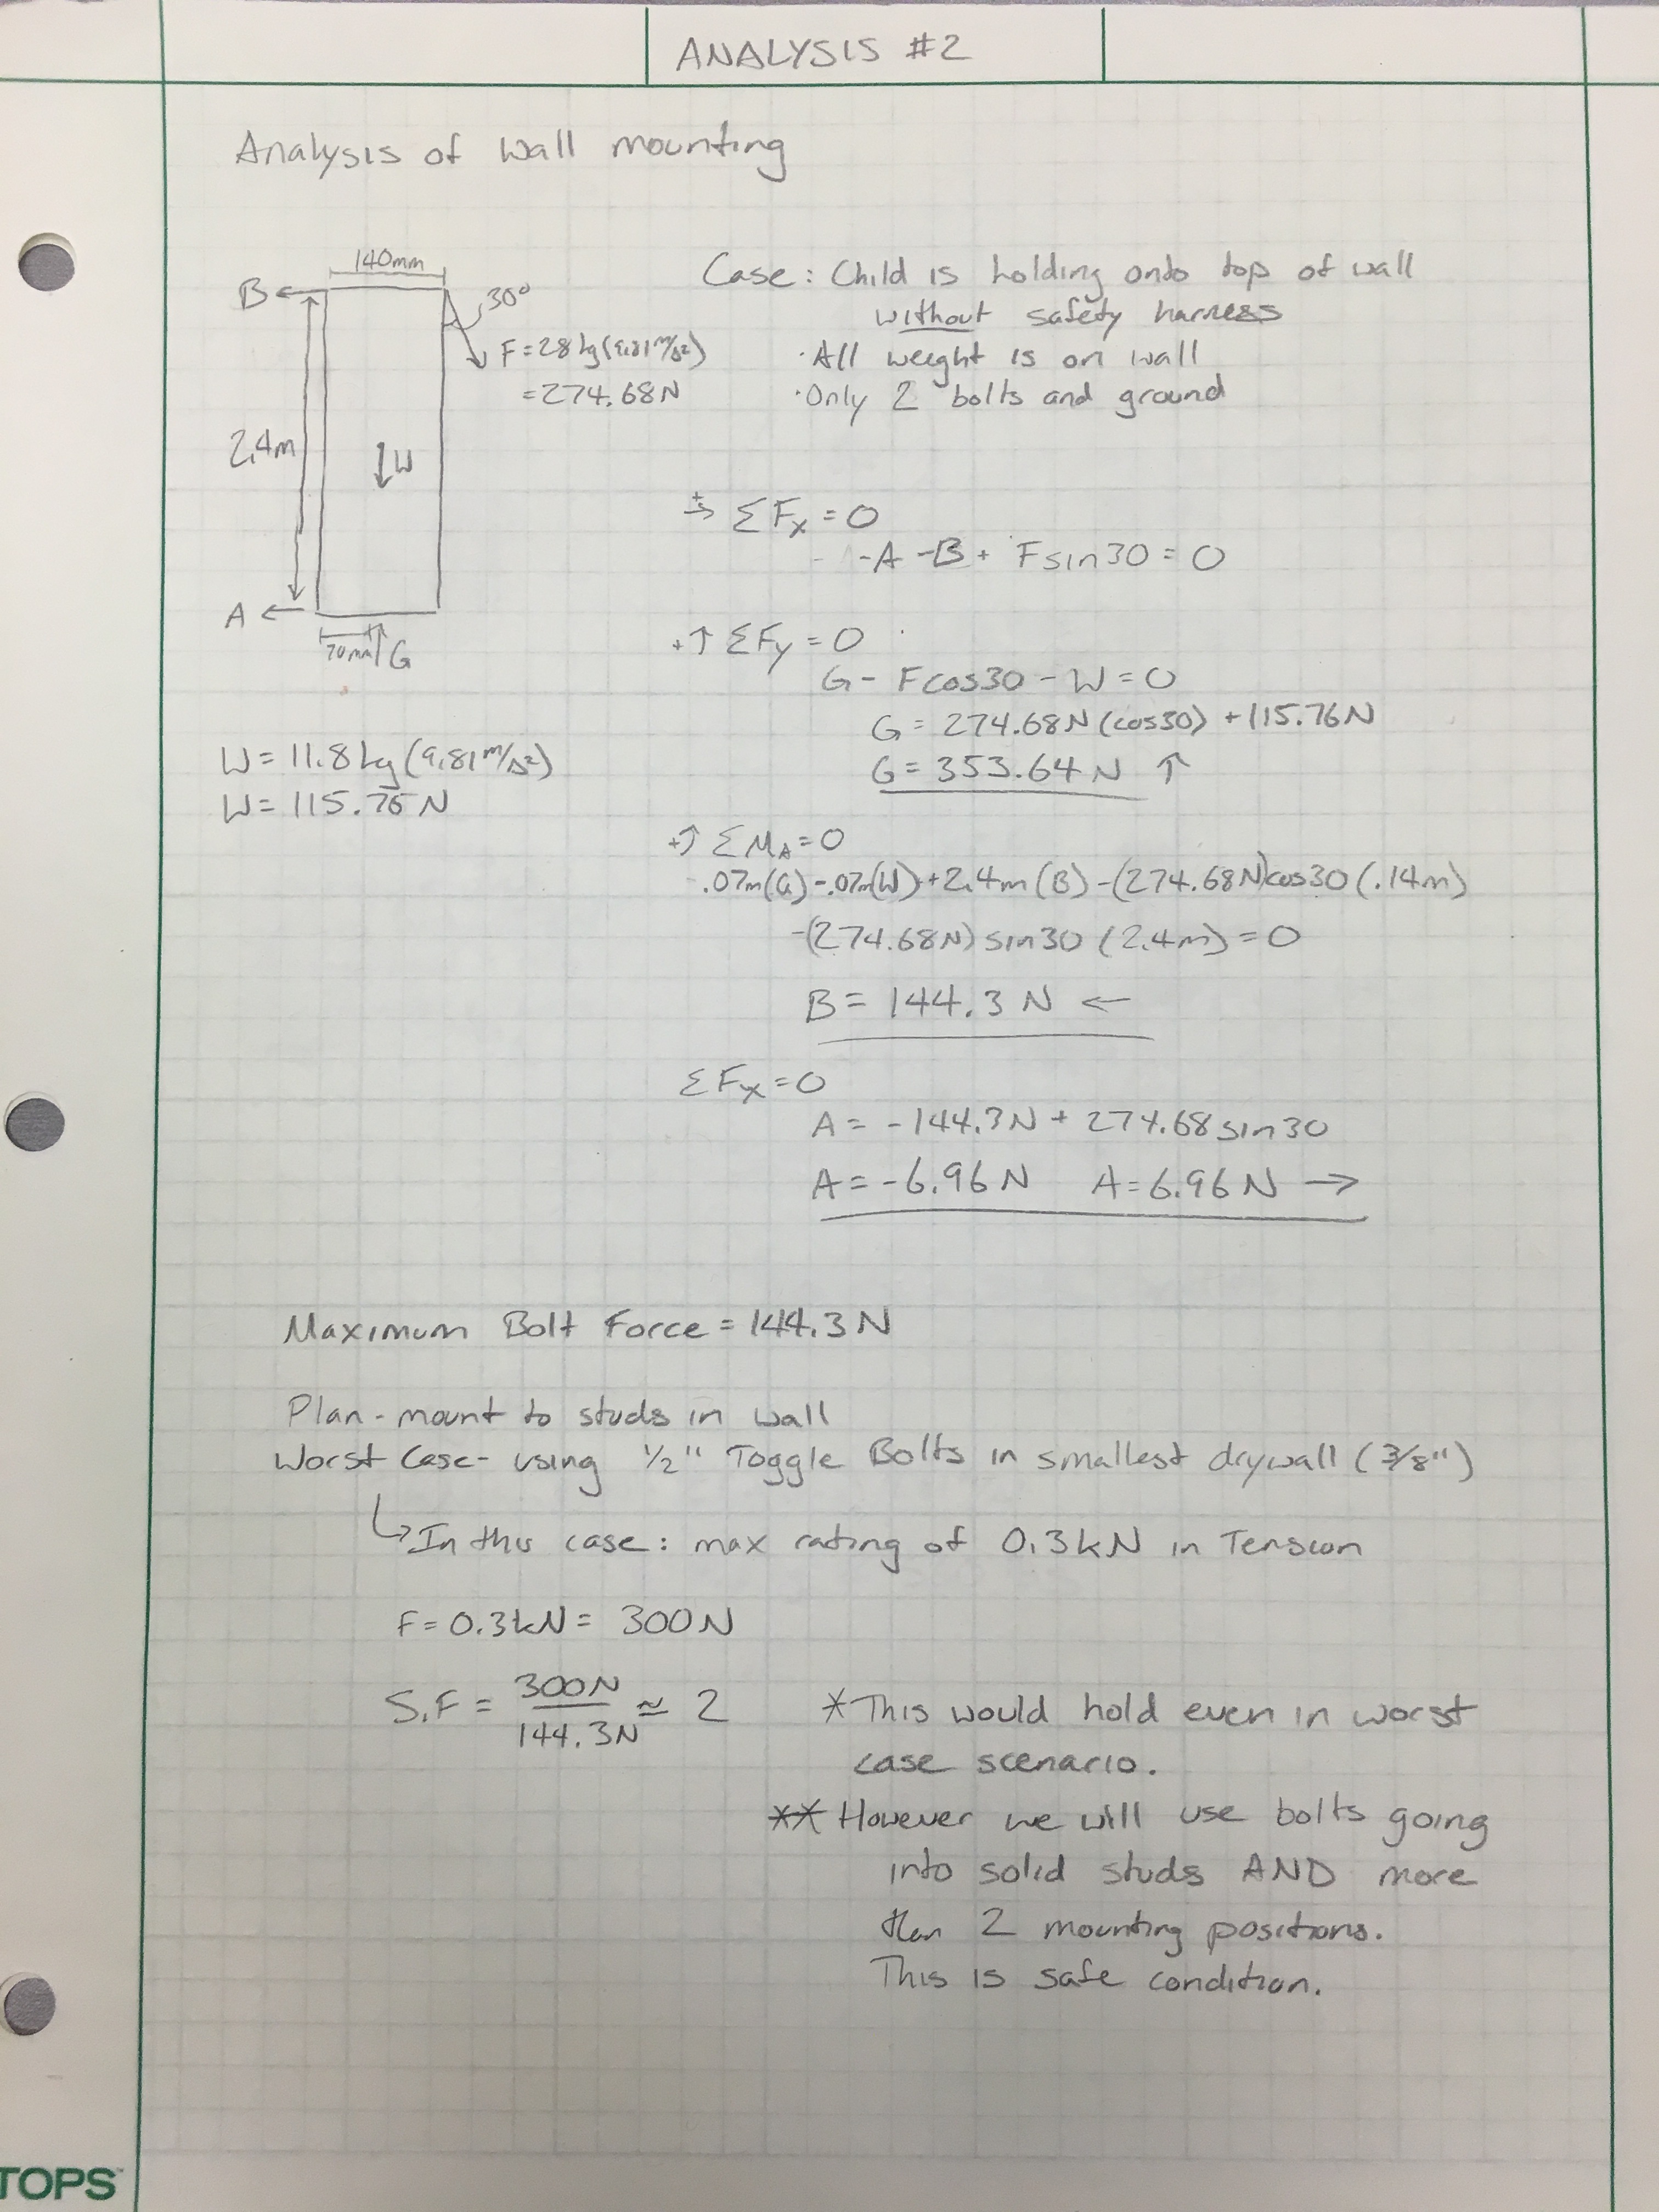 ANALYSIS #2
Analysis of wall mounting
140mm
B
30°
F=28kg(9.81m/s²)
=274.68N
2.4m
W
A
70mm
G
W=11.8kg(9.81m/s²)
W=115.76N
Case: Child is holding onto top of wall
without safety harness
·All weight is on wall
·Only 2 bolts and ground
+→ ΣFx=0
-A-B+Fsin30=0
+↑ΣFy=0
G-Fcos30-W=0
G=274.68N(cos30)+115.76N
G=353.64N ↑
+↺ΣMA=0
.07m(G)-.07m(W)+2.4m(B)-(274.68N)cos30(.14m)
-(274.68N)sin30(2.4m)=0
B=144.3N ←
ΣFx=0
A=-144.3N+274.68sin30
A=-6.96N A=6.96N →
Maximum Bolt Force=144.3N
Plan-mount to studs in wall
Worst Case-using 1/2" Toggle Bolts in smallest drywall (3/8")
↳In this case: max rating of 0.3kN in Tension
F=0.3kN=300N
S.F=300N/144.3N≈2
*This would hold even in worst
case scenario.
**However we will use bolts going
into solid studs AND more
than 2 mounting positions.
This is safe condition.
TOPS™